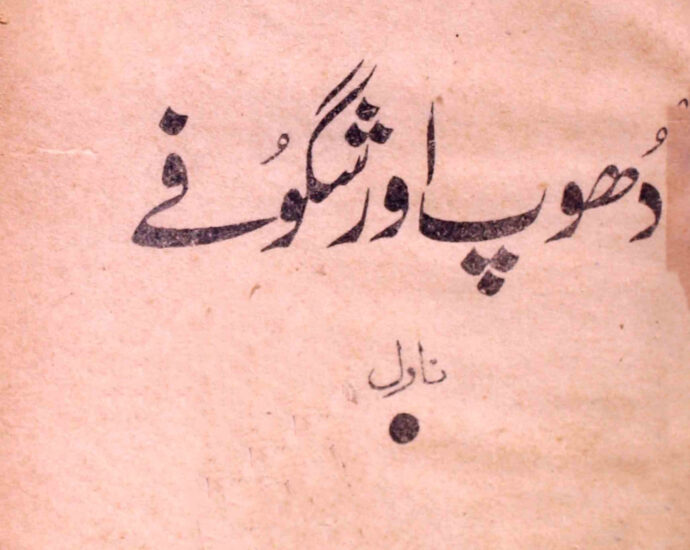 دُھوپ اور شگُوفے
ناول